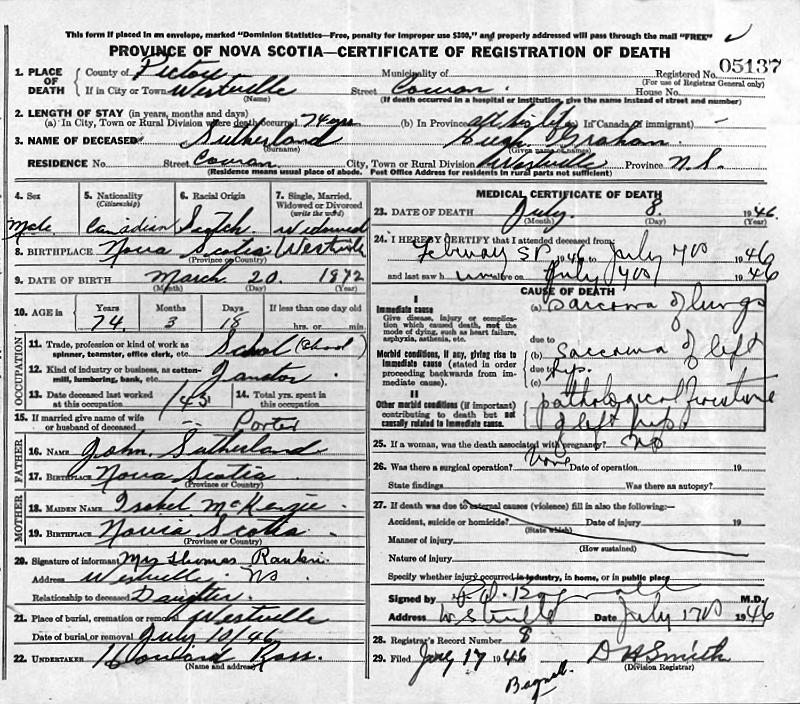 This form if placed in an envelope, marked "Dominion Statistics—Free, penalty for improper use $300," and properly addressed will pass through the mail "FREE"
PROVINCE OF NOVA SCOTIA—CERTIFICATE OF REGISTRATION OF DEATH
1. PLACE OF DEATH County of Pictou Municipality of Registered No. 05137
(For use of Registrar General only)
If in City or Town Westville (Name) Street Cowan House No.
(If death occurred in a hospital or institution, give the name instead of street and number)
2. LENGTH OF STAY (in years, months and days)
(a) In City, Town or Rural Division where death occurred 74 yrs (b) In Province all his life (c) In Canada (if immigrant) —
3. NAME OF DECEASED Sutherland (Surname) Hugh Graham (Given name or names)
RESIDENCE No. Street Cowan City, Town or Rural Division Westville Province N.S.
(Residence means usual place of abode. Post Office Address for residents in rural parts not sufficient)
4. Sex Male
5. Nationality (Citizenship) Canadian
6. Racial Origin Scotch
7. Single, Married, Widowed or Divorced (write the word) Widowed
8. BIRTHPLACE Nova Scotia Westville
(Province or Country)
9. DATE OF BIRTH March 20 1872
(Month) (Day) (Year)
10. AGE in Years 74 Months 3 Days 18 If less than one day old hrs. or min.
OCCUPATION
11. Trade, profession or kind of work as spinner, teamster, office clerk, etc. School (School)
12. Kind of industry or business, as cotton-mill, lumbering, bank, etc. Janator
13. Date deceased last worked at this occupation 1943
14. Total yrs. spent in this occupation
15. If married give name of wife or husband of deceased — Porter
FATHER
16. Name John Sutherland
17. Birthplace Nova Scotia
(Province or Country)
MOTHER
18. MAIDEN NAME Isabel McKenzie
19. BIRTHPLACE Novia Scotia
(Province or Country)
20. Signature of informant Mrs Thomas Rankin
Address Westville NS
Relationship to deceased Daughter
21. Place of burial, cremation or removal Westville
Date of burial or removal July 10/46
22. UNDERTAKER Howard Ross
(Name and address)
MEDICAL CERTIFICATE OF DEATH
23. DATE OF DEATH July 8 1946
(Month) (Day) (Year)
24. I HEREBY CERTIFY that I attended deceased from
February 1946 to July 1946
and last saw h alive on July 1946
CAUSE OF DEATH
I
Immediate cause
Give disease, injury or complication which caused death, not the mode of dying, such as heart failure, asphyxia, asthenia, etc.
(a) Sarcoma of lungs
due to
Morbid conditions, if any, giving rise to immediate cause (stated in order proceeding backwards from immediate cause).
(b) Sarcoma of left hip.
due to
(c)
II
Other morbid conditions (if important) contributing to death but not causally related to immediate cause.
pathological fracture of left hip
25. If a woman, was the death associated with pregnancy? No
26. Was there a surgical operation? None Date of operation 19
State findings Was there an autopsy?
27. If death was due to external causes (violence) fill in also the following:—
Accident, suicide or homicide? Date of injury 19
(State which)
Manner of injury
(How sustained)
Nature of injury
Specify whether injury occurred in industry, in home, or in public place
Signed by M.D.
Address Westville Date July 1946
28. Registrar's Record Number 8
29. Filed July 17 1946 D H Smith
(Division Registrar)